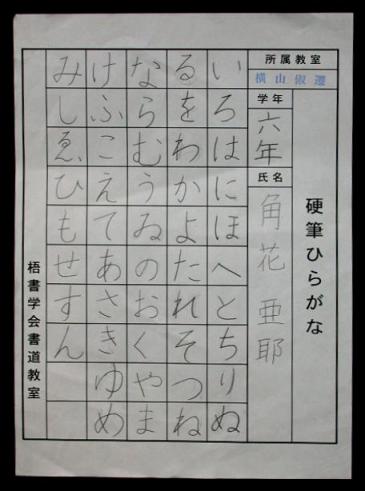 硬筆ひらがな
所属教室
横山俶遷
学年
六年
氏名
角花 亜耶
いろはにほへとちりぬ
るをわかよたれそつね
ならむうゐのおくやま
けふこえてあさきゆめ
みしゑひもせすん
梧書学会書道教室